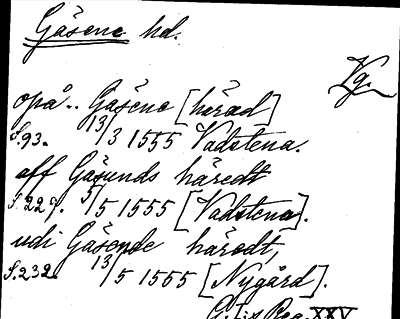 Gåsene hd.
Vg.
opå.. Gåsene [härad]
S.93. 13/3 1555 Vadstena.
aff Gåsunds häredt
S.229. 5/5 1555 [Vadstena].
udi Gåsende häredt,
S.232. 13/5 1555 [Nygård].
G.I:s Reg. XXV